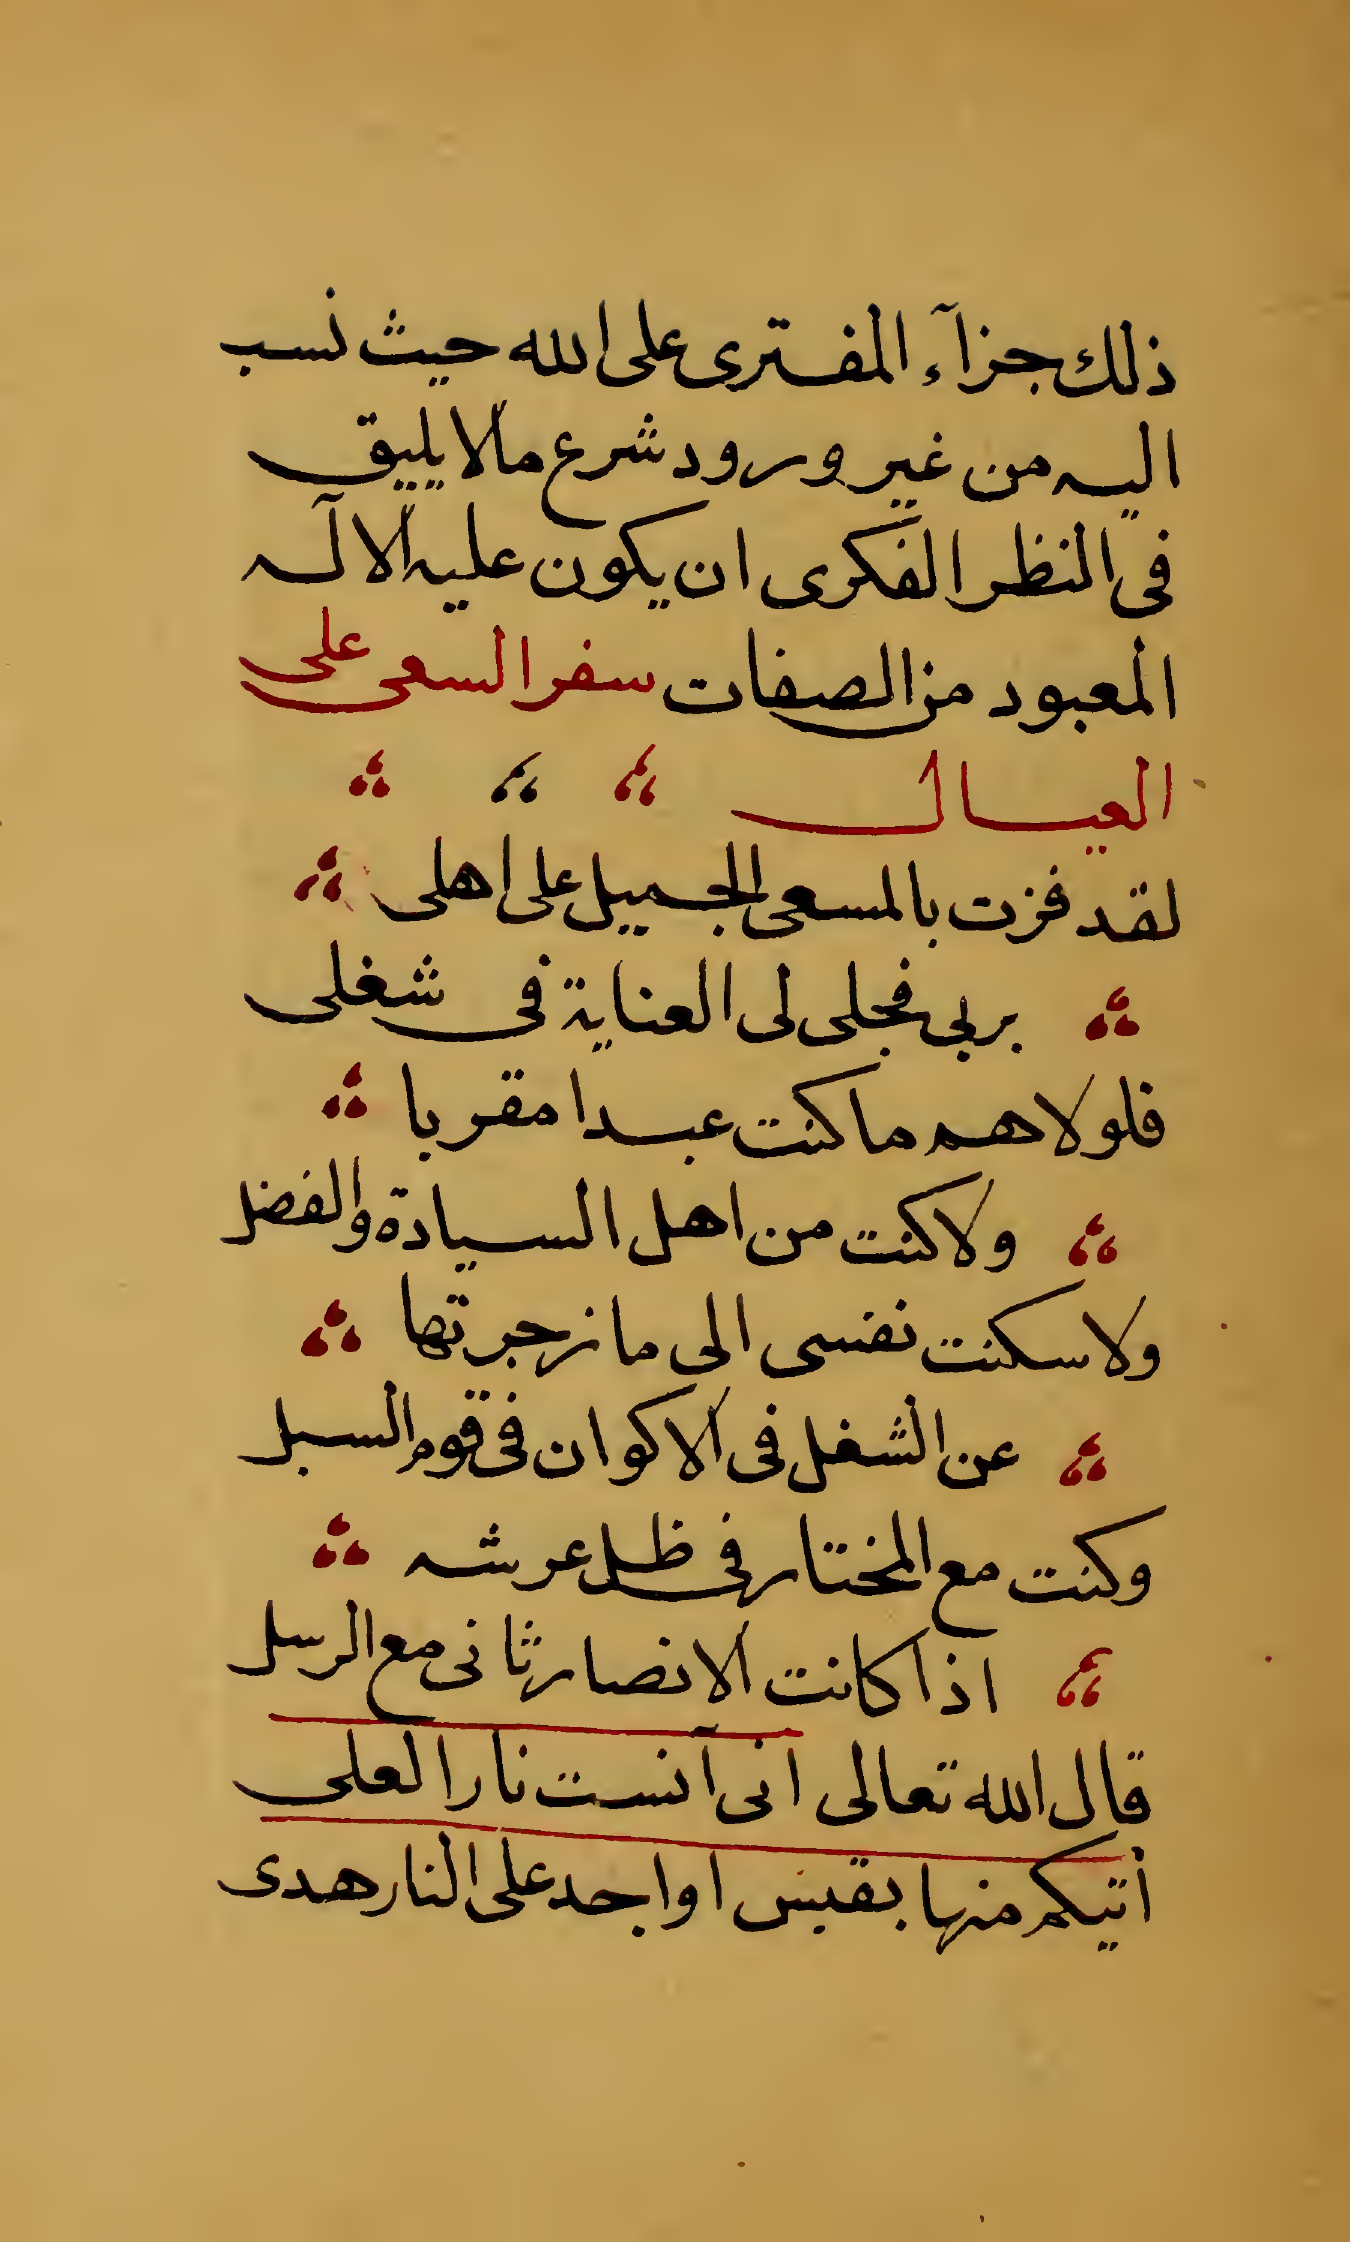 ذلك جزآء المفترى على الله حيث نسب
اليه من غير ورود شرع مالا يليق
فى النظر الفكرى ان يكون عليه الاله
المعبود من الصفات سفر السعى على
العيال
لقد فزت بالمسعى الجميل على اهلى
بربى فجلى لى العناية فى شغلى
فلولاهم ما كنت عبدا مقربا
ولا كنت من اهل السيادة والفضل
ولا سكنت نفسى الى ما زجرتها
عن الشغل فى الاكوان فى قوم السبل
وكنت مع المختار فى ظل عرشه
اذا كانت الانصار ثانى مع الرسل
قال الله تعالى انى آنست نارا لعلى
أتيكم منها بقبس او اجد على النار هدى